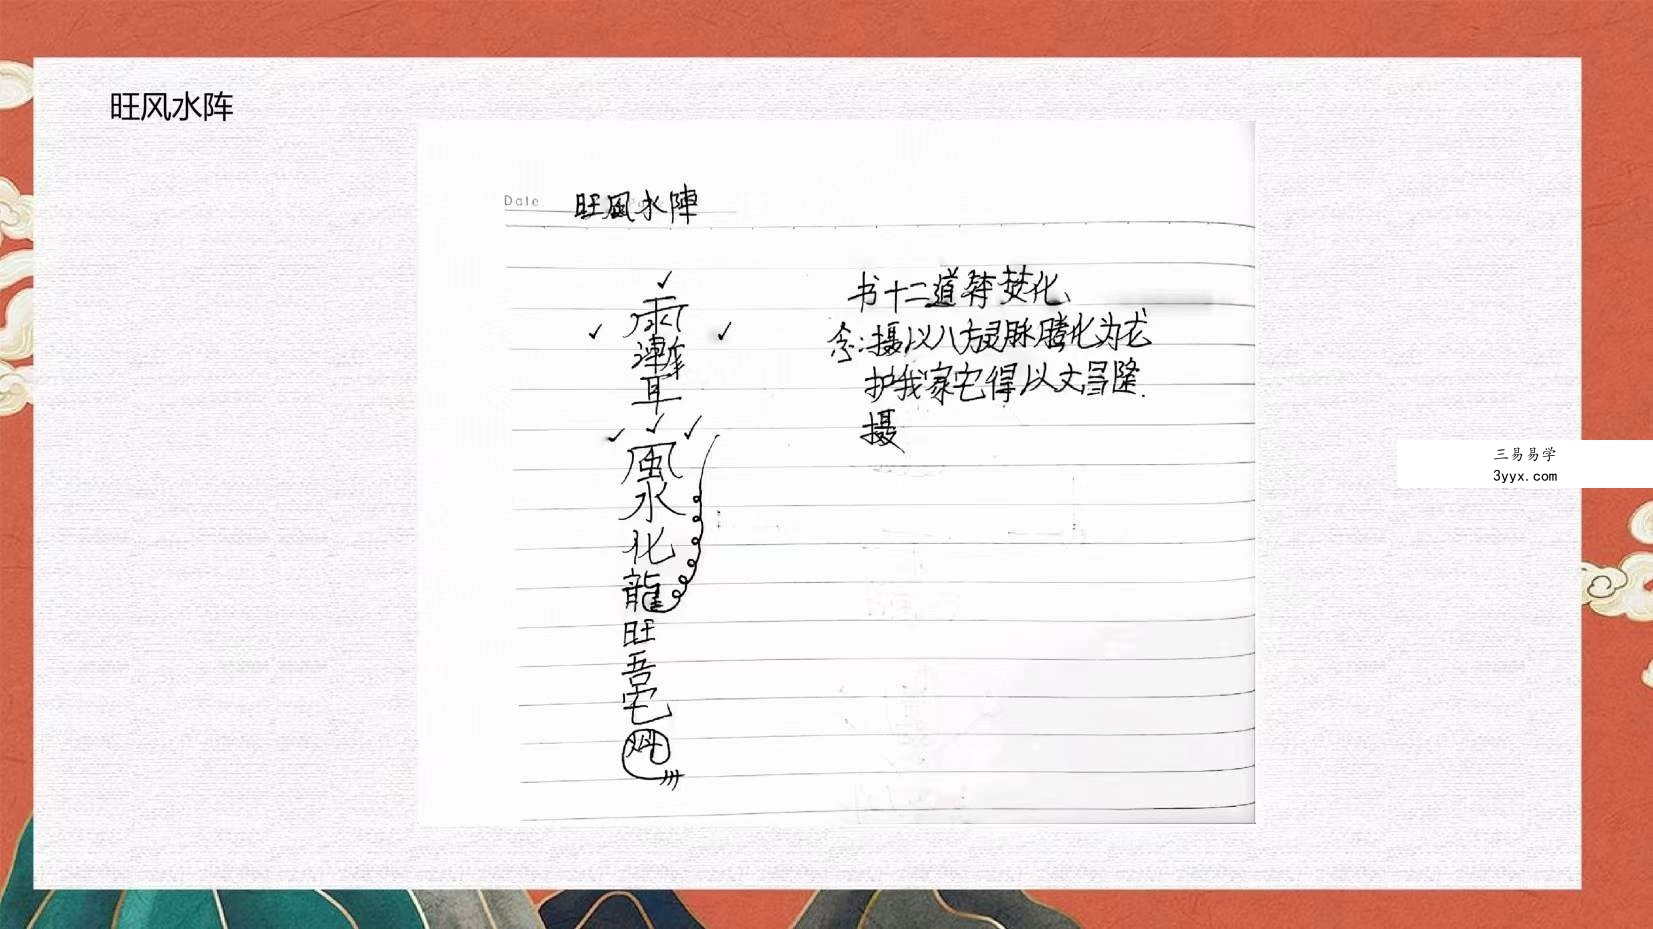 旺风水阵
Date
旺風水陣
雨
漸
耳
風
水
化
龍
旺
吾
宅
书十二道符焚化、
念:摄以八方灵脉腾化为龙
护我家宅得以文昌隆.
摄
三易易学
3yyx.com